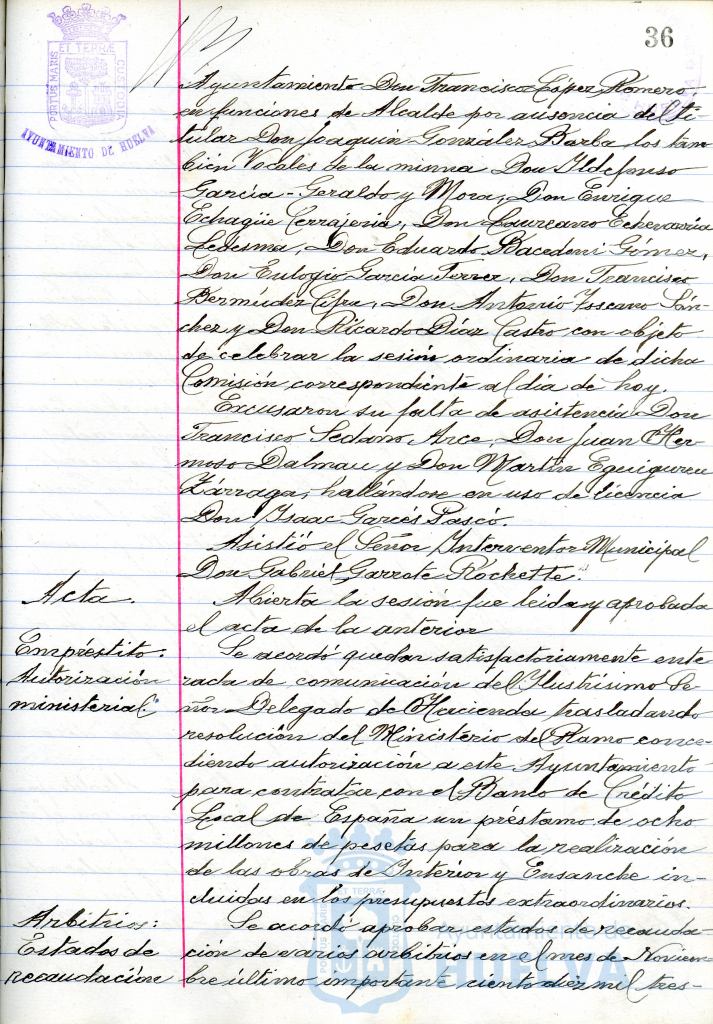 36
ET TERRÆ
PORTUS MARIS
CUSTODIA
AYUNTAMIENTO DE HUELVA
Ayuntamiento Don Francisco López Romero
en funciones de Alcalde por ausencia del ti-
tular Don Joaquín González Barba los tam-
bién Vocales de la misma Don Ildefonso
García-Geraldo y Mora, Don Enrique
Echagüe Cerrajeria, Don Laureano Echevarría
Ledesma, Don Eduardo Bacedoni Gómez,
Don Eulogio García Ferrer, Don Francisco
Bermúdez Cifre, Don Antonio Toscano Sán-
chez y Don Ricardo Díaz Castro con objeto
de celebrar la sesión ordinaria de dicha
Comisión correspondiente al día de hoy.
Excusaron su falta de asistencia Don
Francisco Sedano Arce, Don Juan Her-
moso Dalmau y Don Martín Eguiguren
Zárraga, hallándose en uso de licencia
Don Isaac Garcés Pascó.
Asistió el Señor Interventor Municipal
Don Gabriel Garrote Rochette.
Acta.
Abierta la sesión fue leida y aprobada
el acta de la anterior
Empréstito.
Autorización
ministerial:
Se acordó quedar satisfactoriamente ente
rada de comunicación del Ilustrísimo Se
ñor Delegado de Hacienda trasladando
resolución del Ministerio del Ramo conce-
diendo autorización a este Ayuntamiento
para contratar con el Banco de Crédito
Local de España un préstamo de ocho
millones de pesetas para la realización
de las obras de Interior y Ensanche in-
cluidas en los presupuestos extraordinarios.
Arbitrios:
Estados de
recaudación
Se acordó aprobar estados de recauda-
ción de varios arbitrios en el mes de Noviem
bre último importante ciento diez mil tres-
ET TERRÆ
PORTUS MARIS
CUSTODIA
Ayuntamiento de
HUELVA